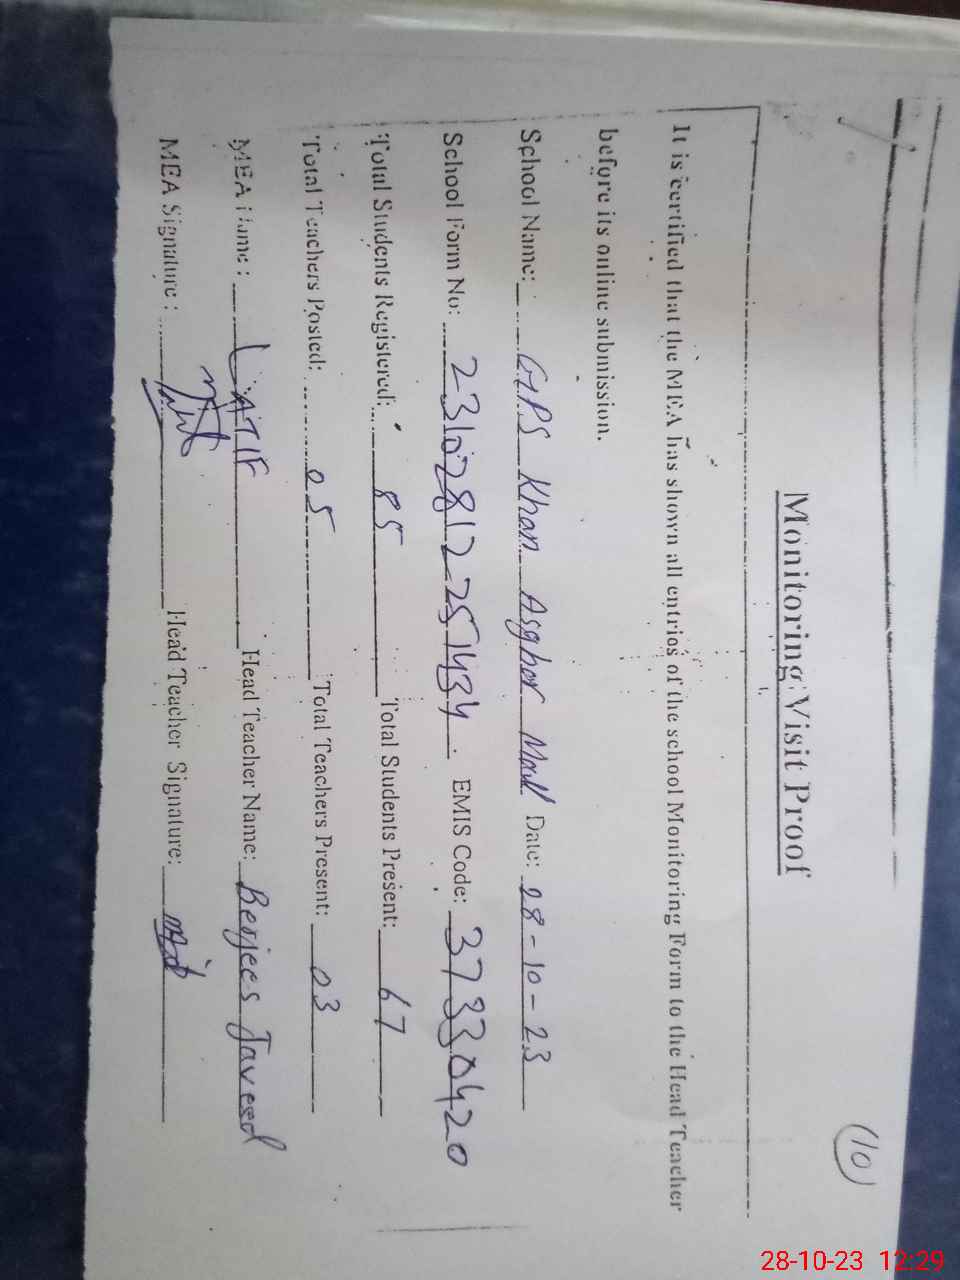 (10)
Monitoring Visit Proof
It is certified that the MEA has shown all entries of the school Monitoring Form to the Head Teacher
before its online submission.
School Name: GPS Khan Asghar Date: 28-10-23
School Form No: 23102812251434 EMIS Code: 37330420
Total Students Registered: 85 Total Students Present: 67
Total Teachers Posted: 05 Total Teachers Present: 03
MEA Name: LATIF Head Teacher Name: Berjees Javeed
MEA Signature: Head Teacher Signature:
28-10-23 12:29